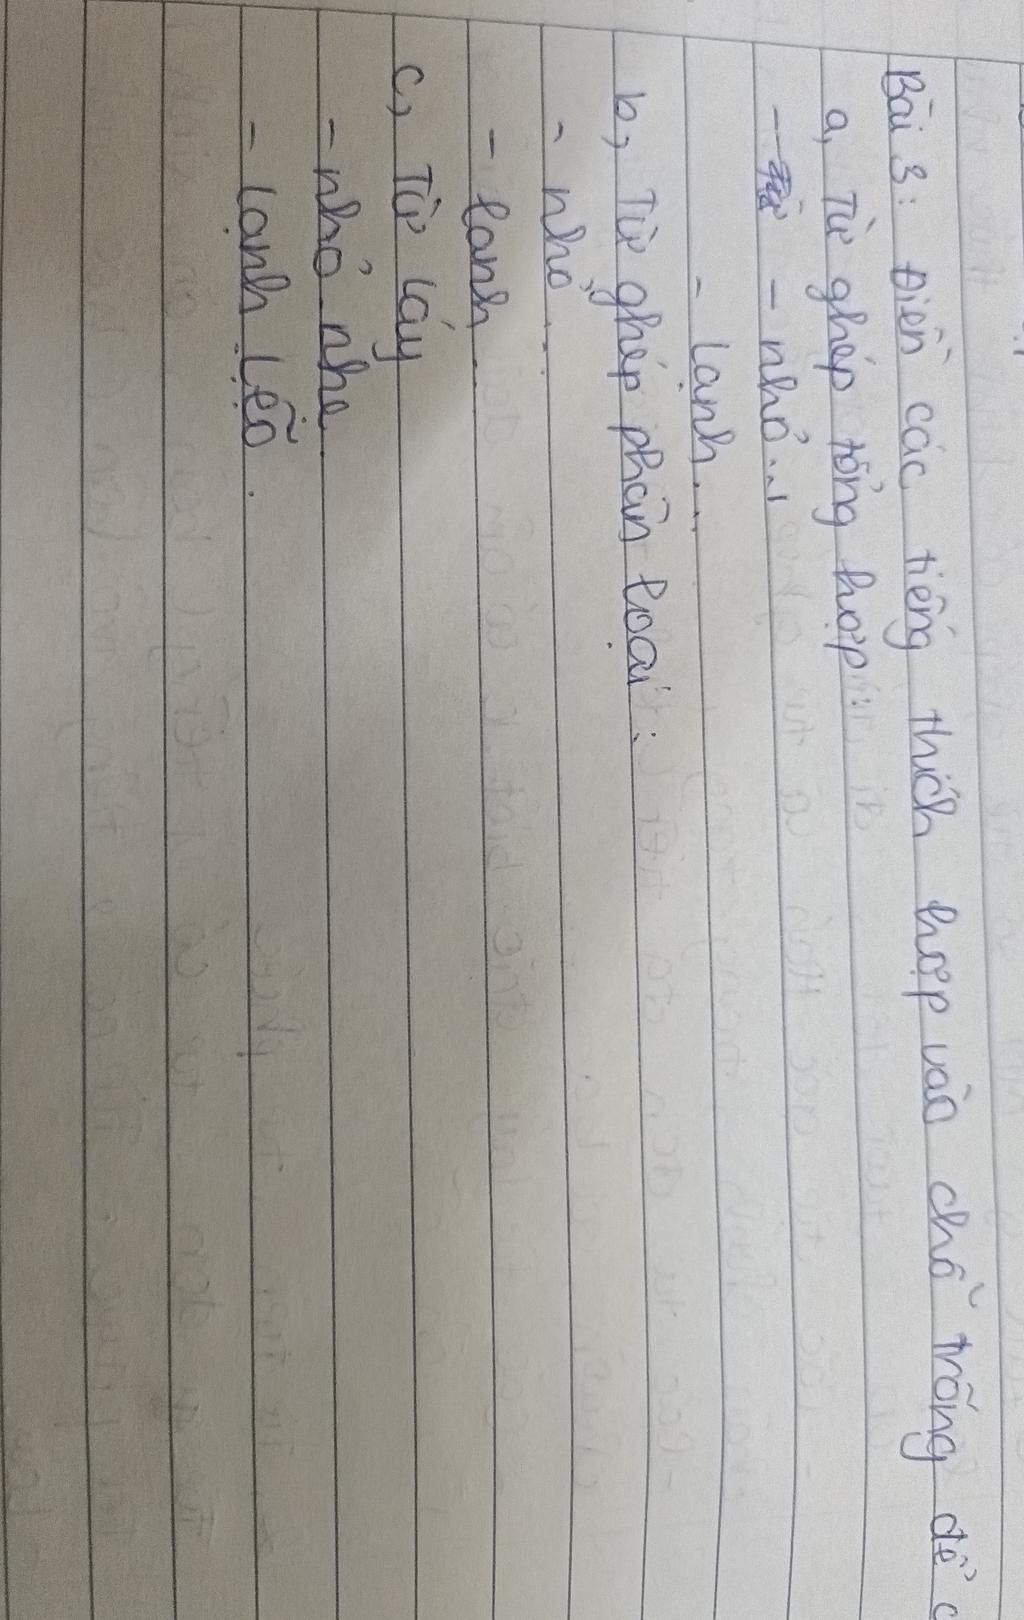 Bài 3: Điền các tiếng thích hợp vào chỗ trống để
a, Từ ghép tổng hợp:
- - nhỏ...
- lạnh...
b, Từ ghép phân loại:
- nhỏ...
- lạnh...
c, Từ láy
- nhỏ nhẹ
- lạnh lẽo.